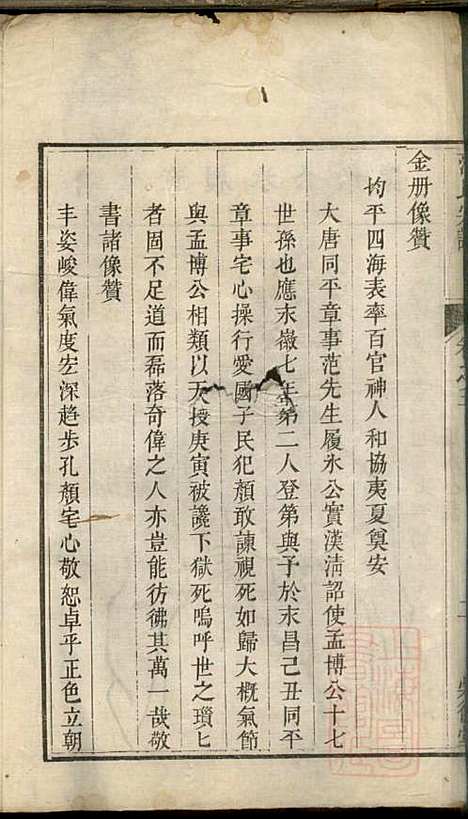 金册像贊
均平四海表率百官神人和協夷夏奠安
大唐同平章事范先生履氷公實漢淸詔使孟博公十七
世孫也應末嶶七年第二人登第與予於末昌己丑同平
章事宅心操行愛國子民犯顏敢諫視死如歸大槪氣節
與孟博公相類以天授庚寅被讒下獄死嗚呼世之瑣匕
者固不足道而磊落奇偉之人亦豈能彷彿其萬一哉敬
書諸像贊
丰姿峻偉氣度宏深趋歩孔顏宅心敬恕卓乎正色立朝